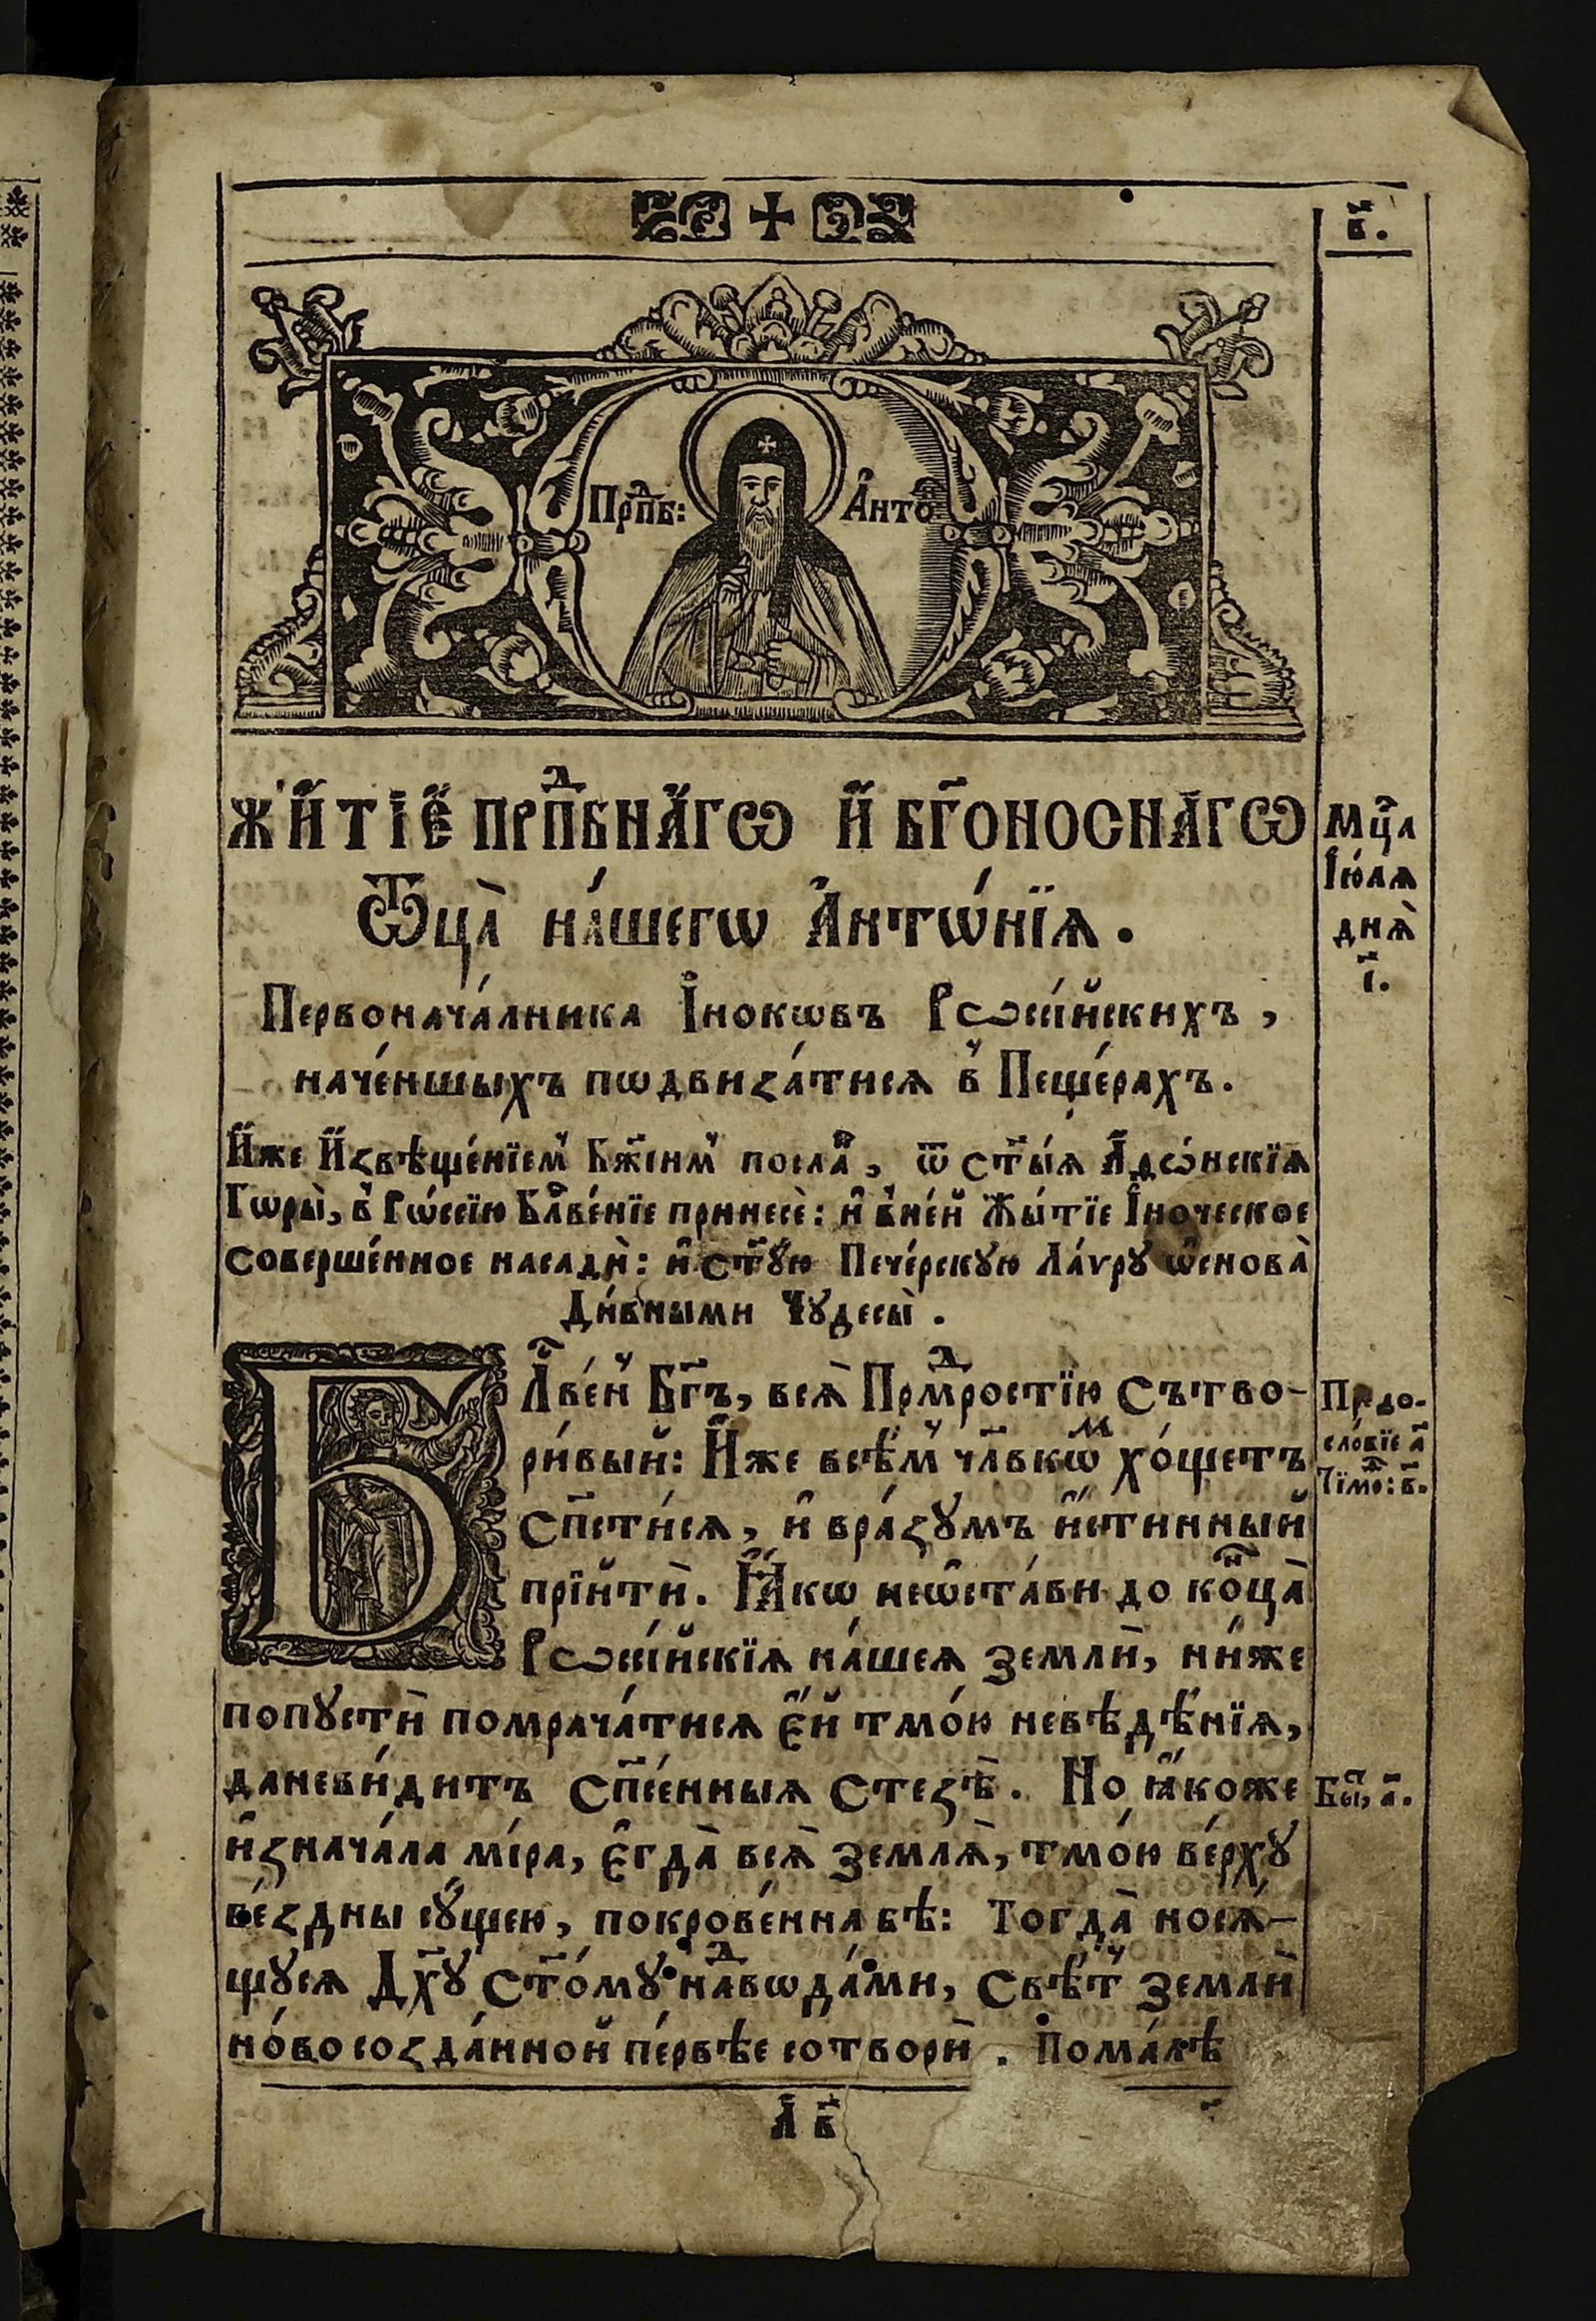 в҃.
Прпⷣб:
А҆нтоⷩ҇
ЖИ́ТІЕ ПРПⷣБНАГѠ И҆ БГ҃ОНОСНАГѠ
Ѿца̀ на́шегѡ А҆нтѡ́нїѧ.
Мцⷭ҇а
І҆ю́лѧ
днѧ̀
і҃.
Первонача́лника І҆нокѡвъ Рѡссі́йскихъ,
наче́ншыхъ пѡдвиза́тисѧ в̾ Пеще́рахъ.
И҆́же И҆звѣще́нїем̾ Бж҃іим̾ посла́ⷩ҇, ѿ ст҃ы́ѧ А҆ѳѡ́нскїѧ
Гѡры̀, в̾ Рѡ́ссїю Блⷭ҇ве́нїе принесѐ: и҆ в̾не́й Жы́тїе І҆ноческое
соверше́нное насадѝ: и҆ ст҃ꙋ́ю Пече́рскꙋю Ла́ѵрꙋ ѡ҆снова̀
Ди́вными Чꙋдесы̀.
БЛⷭ҇ве́н̾ Бг҃ъ, всѧ̀ Прмⷣростїю сътво-
ри́вый: И҆́же всѣ́м̾ чл҃вкѡⷨ хо́щетъ
сп҃сти́сѧ, и҆ вра́зꙋмъ и҆́стинный
прїйтѝ. Ꙗ҆́кѡ неѡ҆ста́ви до коⷩ҇ца̀
Рѡссі́йскїѧ на́шеѧ землѝ, ни́же
попꙋстѝ помрача́тисѧ є҆́й тмо́ю невѣ́дѣ́нїѧ,
даневи́дитъ сп҃се́нныѧ стезѣ̀. Но ꙗ҆́коже
и҆знача́ла мі́ра, є҆гда̀ всѧ̀ землѧ̀, тмо́ю ве́рхꙋ
бе́здны сꙋ́щею, покрове́нна бѣ: Тогда̀ носѧ́-
щꙋсѧ Дх҃ꙋ ст҃о́мꙋ наⷣвѡда́ми, свѣ́т̾ землѝ
но́восозда́нной пе́рвѣе сотворѝ. Пома́лѣ
Предо-
сло́вїе а҃
Тїмоⷴ҇: в҃.
Быⷮ, а҃.
А҃ в҃